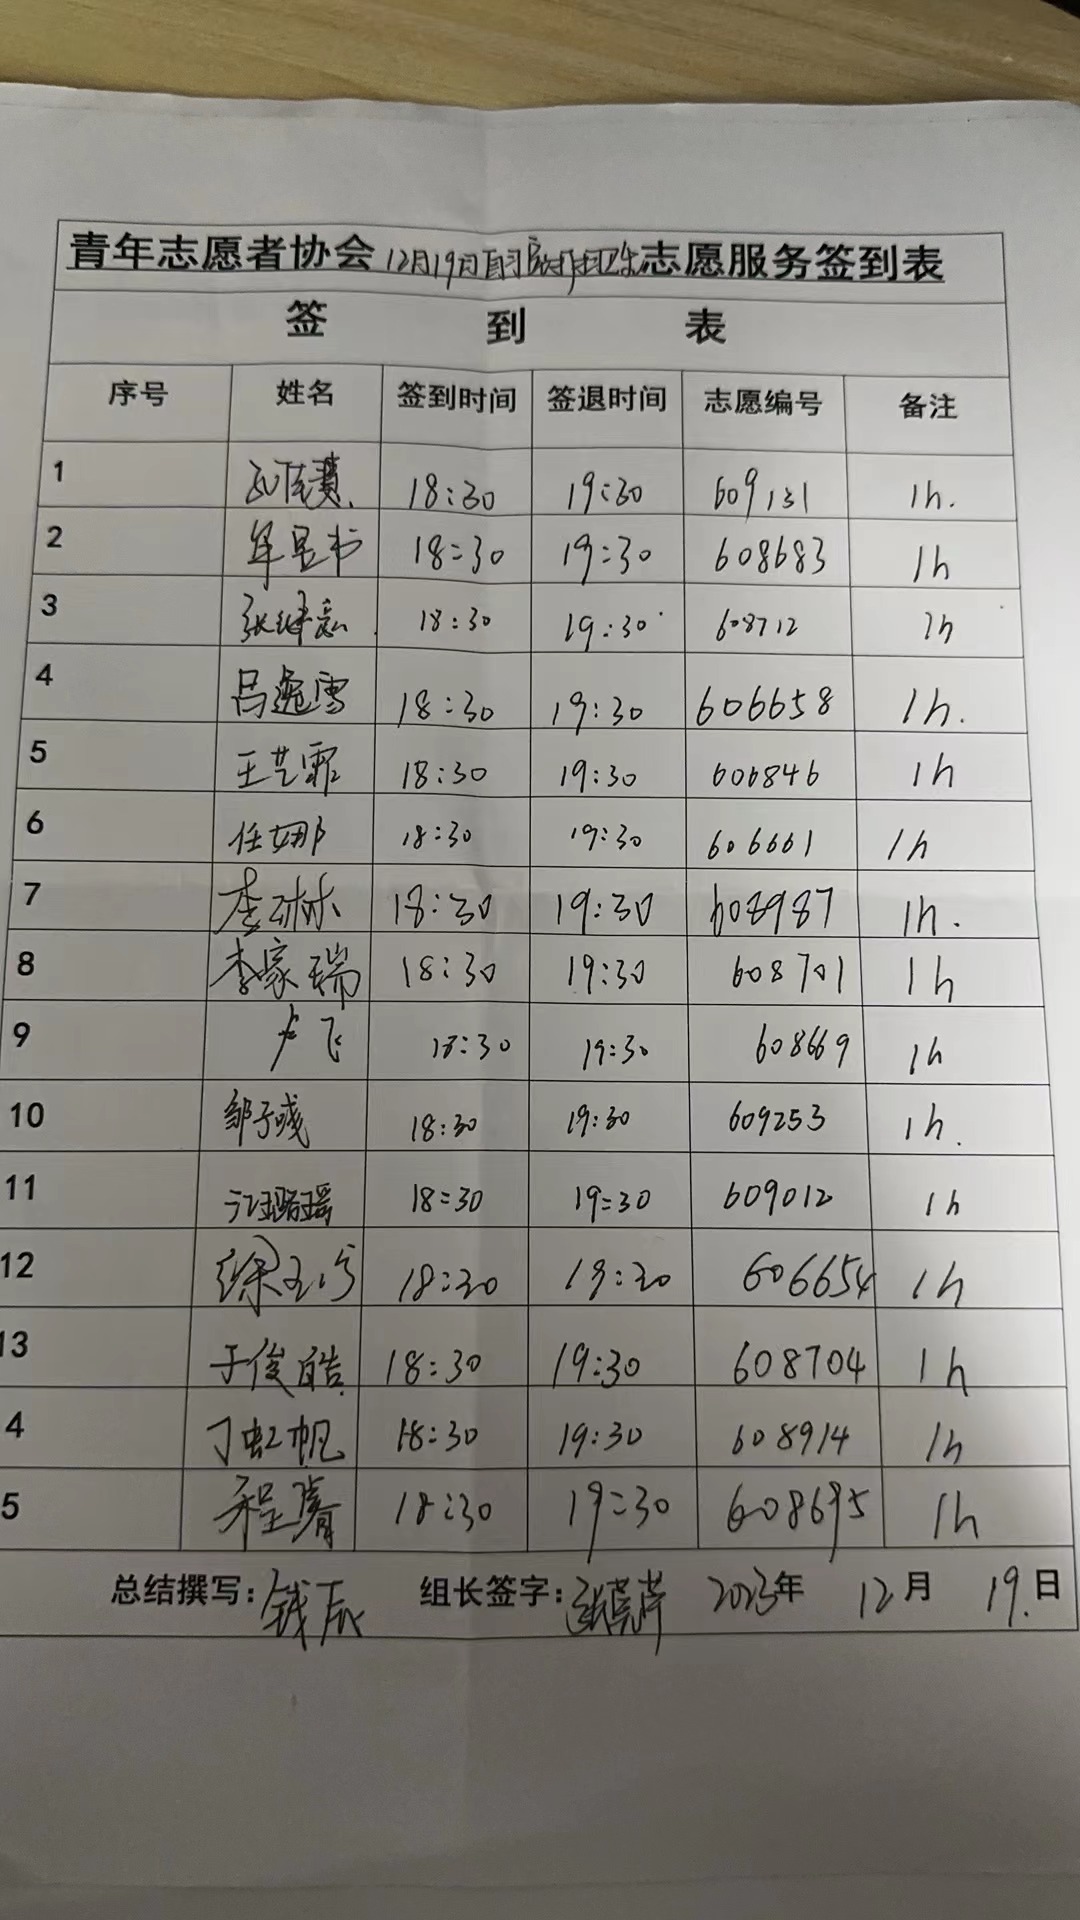 青年志愿者协会12月19日自习室大扫卫生志愿服务签到表
签 到 表
序号 姓名 签到时间 签退时间 志愿编号 备注
1 18:30 19:30 609131 1h.
2 牟昱书 18:30 19:30 608683 1h
3 18:30 19:30 608712 1h
4 吕逸雪 18:30 19:30 606658 1h.
5 王艺霏 18:30 19:30 606846 1h
6 任娜 18:30 19:30 606661 1h
7 李琳 18:30 19:30 608987 1h.
8 李家瑞 18:30 19:30 608701 1h
9 卢飞 18:30 19:30 608669 1h
10 邹子彧 18:30 19:30 609253 1h.
11 江璐瑶 18:30 19:30 609012 1h
12 18:30 19:30 606654 1h
13 于俊皓 18:30 19:30 608704 1h
4 丁虹帆 18:30 19:30 608914 1h
5 程睿 18:30 19:30 608695 1h
总结撰写:钱辰 组长签字: 2023年 12月 19日